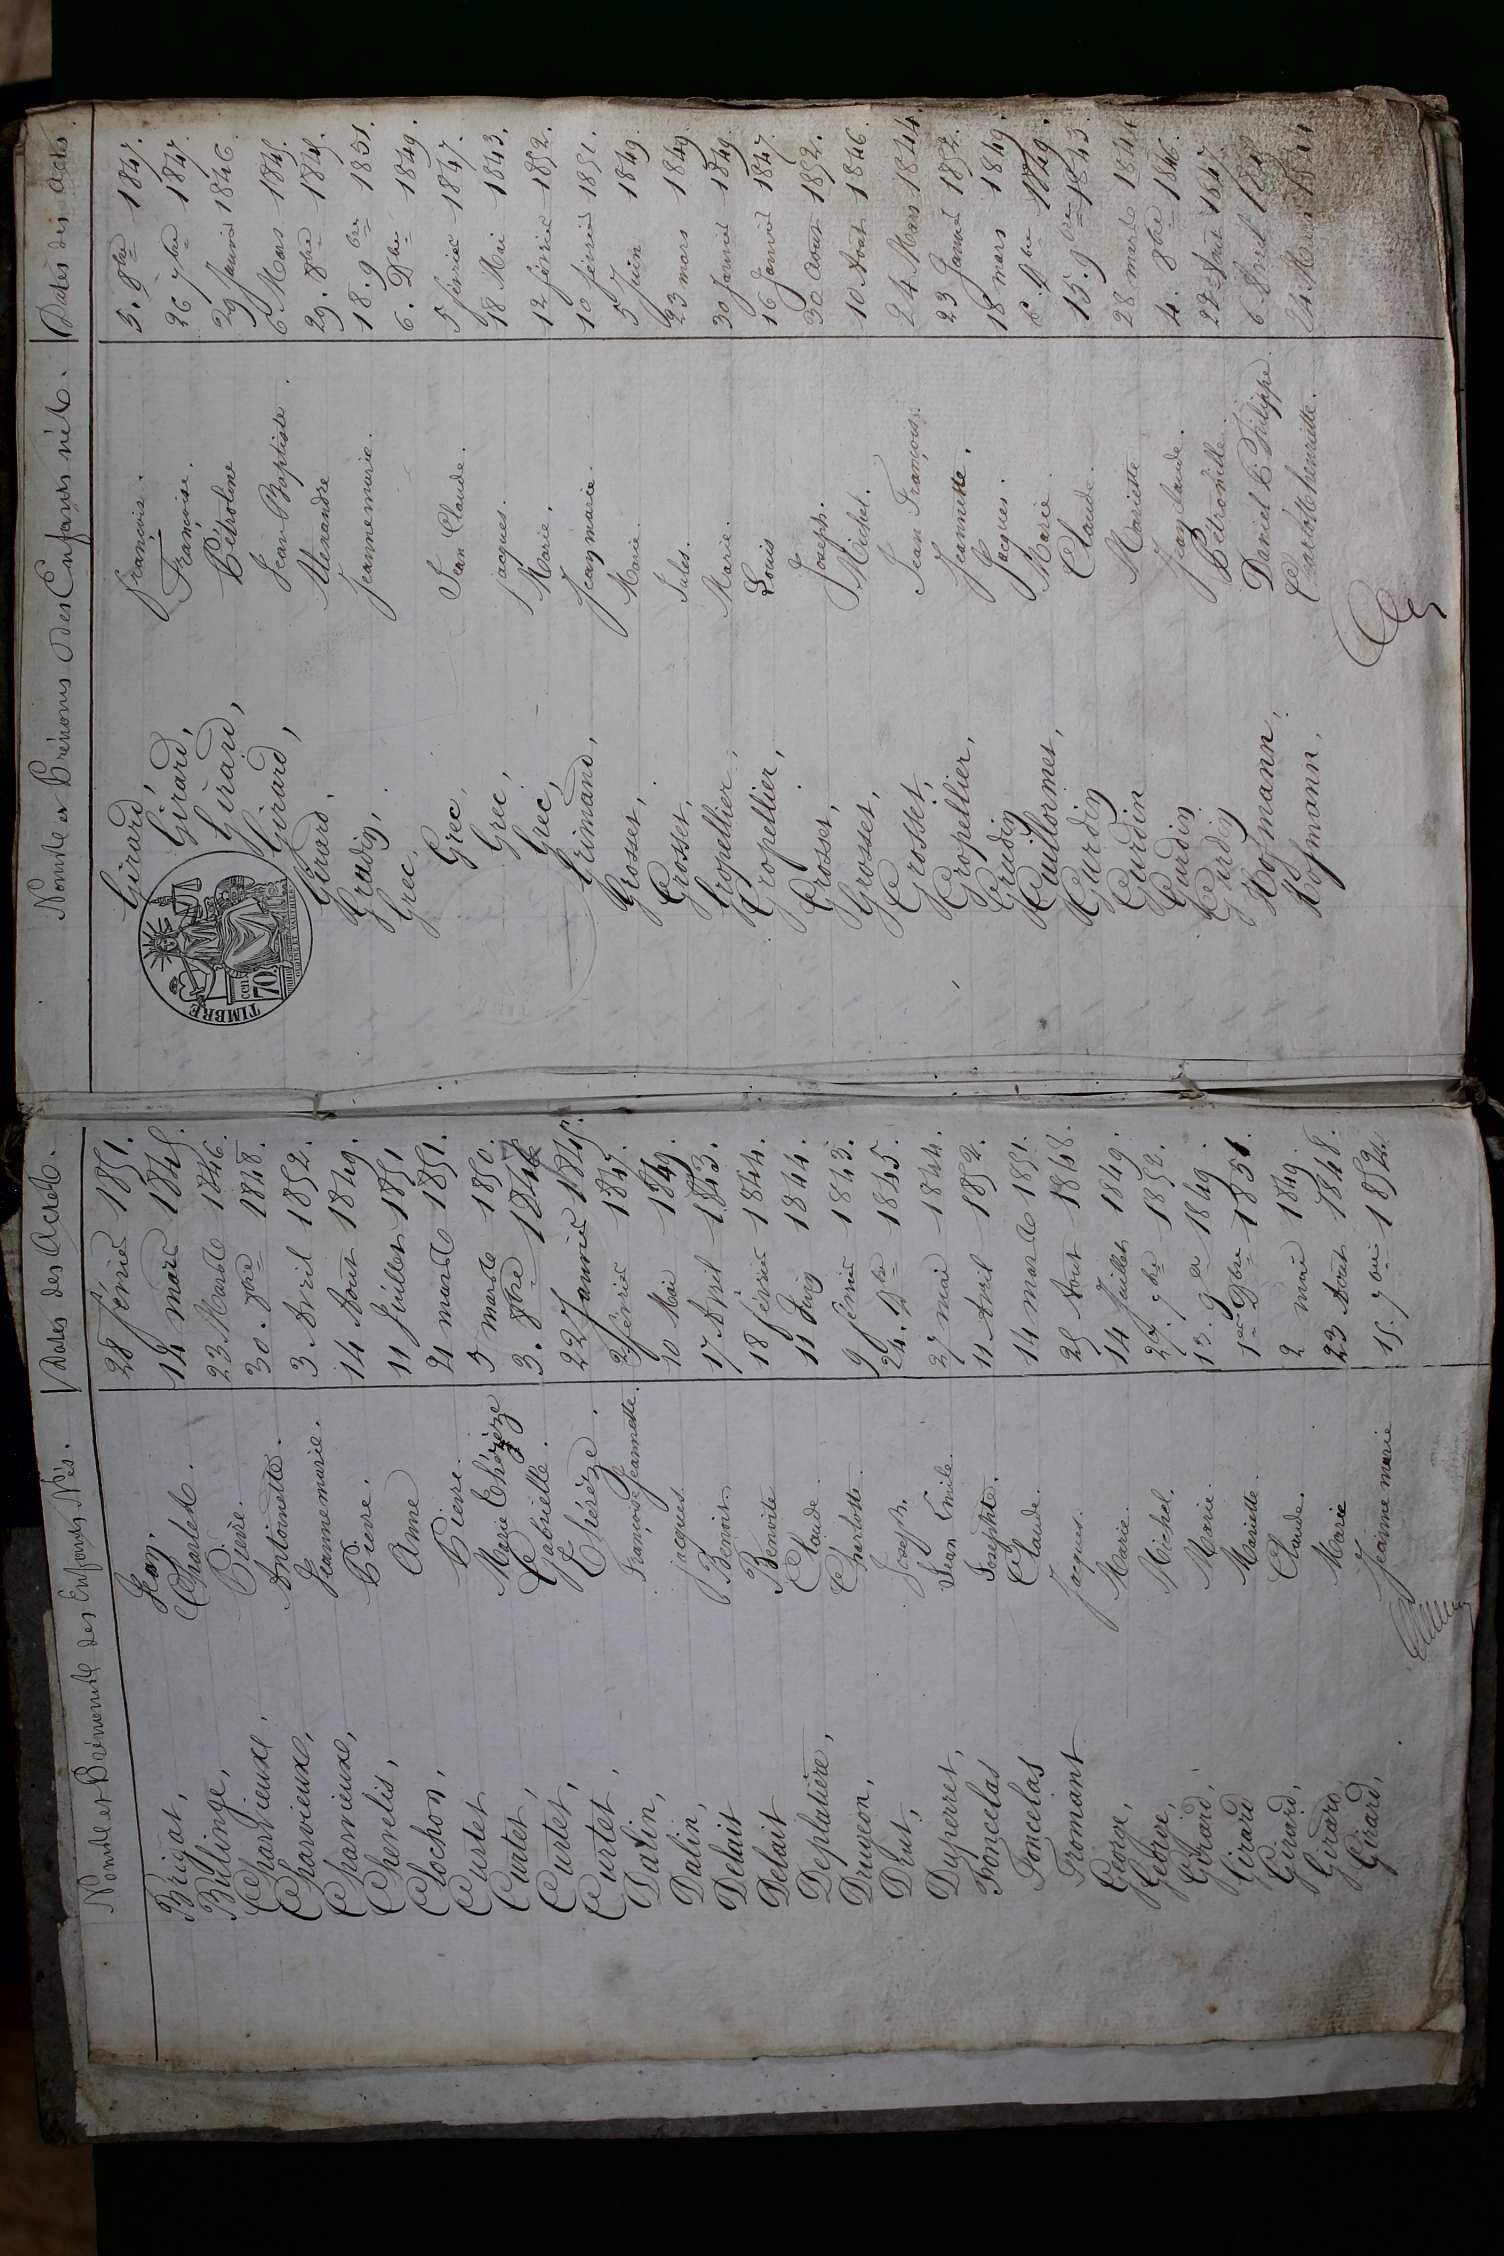 Noms et Prénoms des Enfants Nés. Dates des Actes.
Brigat, Jean. 28 février 1851.
Bulinge, Charles. 14 mars 1845.
Charvieux, Pierre. 23 Mars 1846.
Charvieux, Antoinette. 30. 7bre 1848.
Charvieux, Jeanne marie. 3 Avril 1852.
Chevelis, Pierre. 14 Aout 1849.
Clochon, Anne 11 Juillet 1851
Curtet, Pierre. 21 mars 1851.
Curtet, Marie Thérèze 5 mars 1850.
Curtet, Gabrielle. 3. 8bre
Curtet, Thérèze. 22 Janvier 1845.
Dalin, Françoise Jeannette. 2 février 1845.
Dalin, jacques 10 Mai 1849.
Delait Benoit. 17 Avril 1843.
Delait Benoite 18 février 1844.
Deplatière, Claude 11 Juin 1844.
Drugeon, Charlotte. 9 février 1843.
Drut, Joseph. 24. Dbre 1845.
Duperret, Jean Emile 27 mai 1844.
Foncelas Josephte. 11 Avril 1852.
Foncelas Claude. 14 mars 1851.
Fromant Jacques. 25 Aout 1848
George, Marie. 14 Juillet 1849.
George, Michel. 27. 7bre 1852.
Girard, Marie. 13. 9bre 1849.
Girard Mariette 1er Dbre 1851.
Girard, Claude. 2 mai 1849.
Girard Marie 23 Aout 1848.
Girard, Jeanne marie 15. 7bre 1852.
Noms et Prénoms des Enfants nés. Dates des actes.
Girard, françoise. 5. 8bre 1847.
Girard, Françoise. 26 7bre 1847.
Girard, Pétroline 29 Janvier 1846
Girard, Jean-Baptiste. 6 Mars 1845.
Girard, Alexandre 29. 8bre 1845.
Gradin, Jeanne marie. 18. 9bre 1851.
Grec, 6. Dbre 1849.
Grec, Jean Claude. 5 février 1847.
Grec, jacques. 18 Mai 1843.
Grec, Marie. 12 février 1852.
Grimand, Jeanmarie. 10 février 1851.
Grosset, Marie. 5 Juin 1849
Grosset, Jules. 23 mars 1849
Gropellier, Marie. 30 Janvier 1849.
Gropellier, Louis 16 Janvier 1847.
Grosset, Joseph. 30 Aout 1852.
Grosset, Michel. 10 Aout 1846.
Grosset, Jean François. 24 Mars 1844.
Gropellier, Jeannette. 23 Janvier 1852.
Grudin Jacques. 18 mars 1849.
Guillormet, Marie. 6. 1849.
Gurdin Claude. 15. 9bre 1843.
Gurdin Mariette 28 mars 1844
Gurdin Jean Claude. 4. 8bre 1846.
Gurdin Pétronille. 22 Aout 1847.
Hofmann, Daniel Philippe. 6 Avril
Hofmann, Charlotte henriette. 24 Mars
TIMBRE
70 cen.